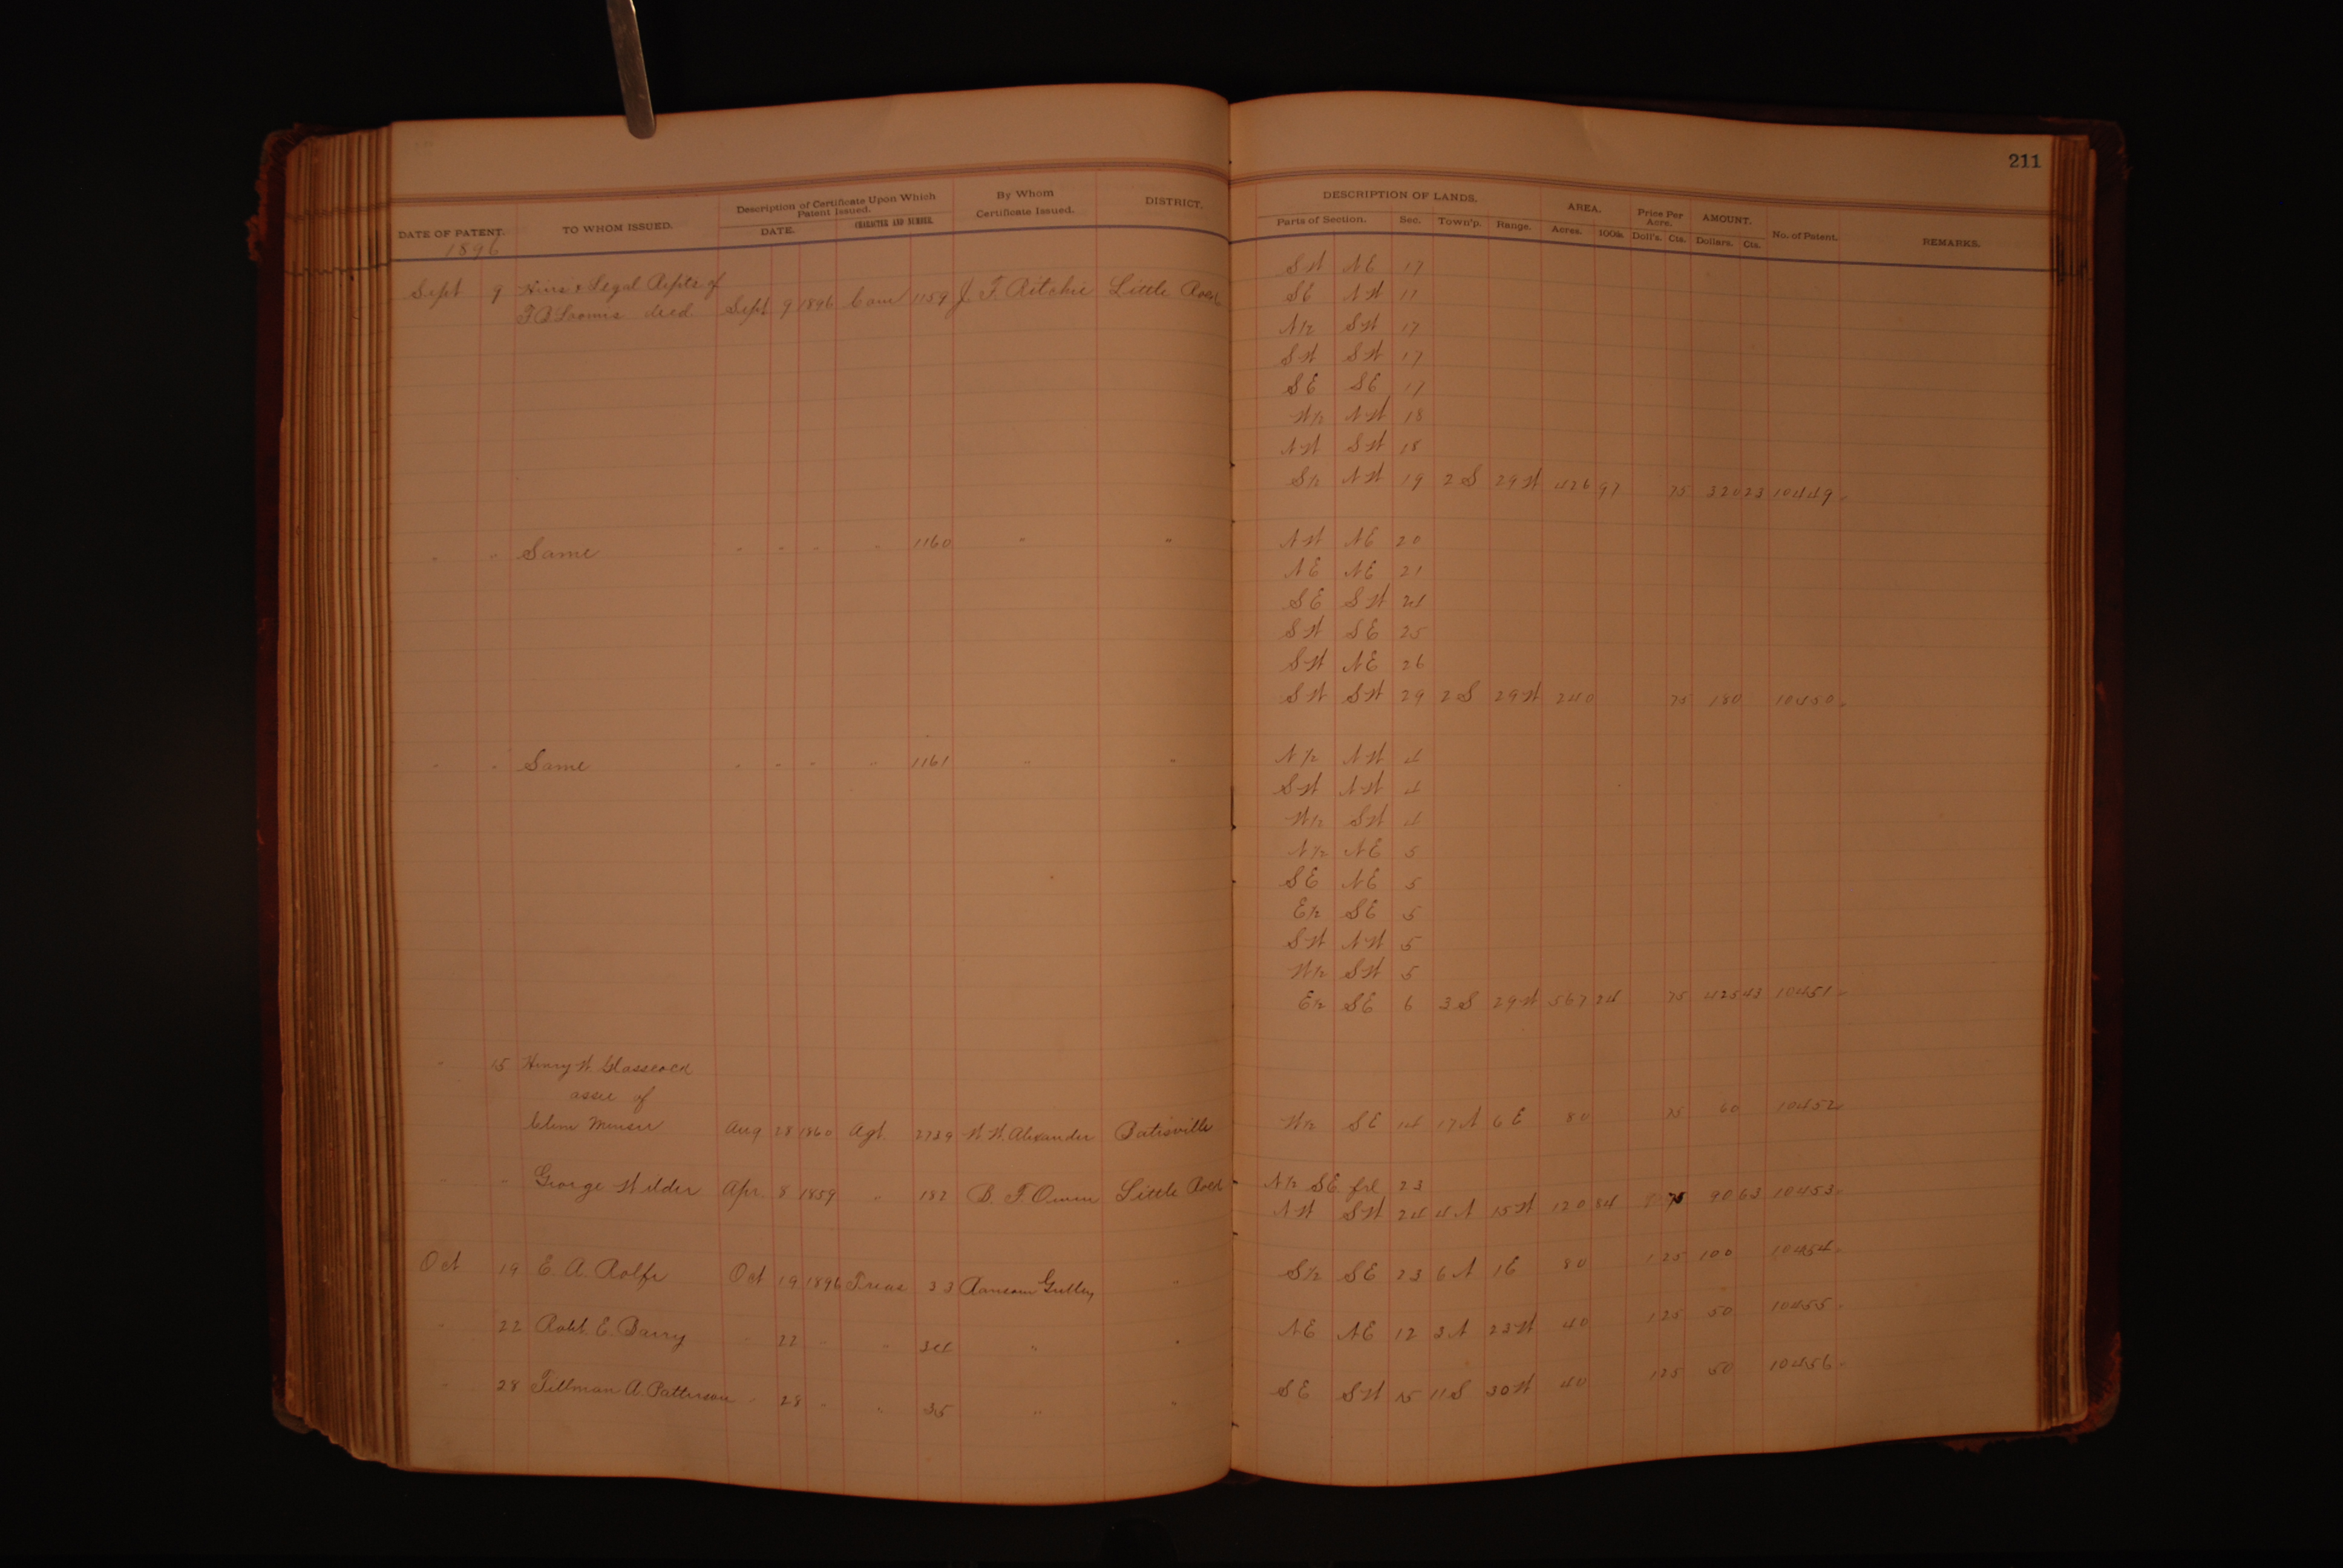 211
DATE OF PATENT. TO WHOM ISSUED. Description of Certificate Upon Which Patent Issued. DATE. CHARACTER AND NUMBER. By Whom Certificate Issued. DISTRICT. DESCRIPTION OF LANDS. Parts of Section. Sec. Town'p. Range. AREA. Acres. 100th. Price Per Acre. Doll's. Cts. AMOUNT. Dollars. Cts. No. of Patent. REMARKS.
1896
SW NE 17
Sept 9 Heirs & Legal Repts of
T B Loomis decd. Sept 9 1896 Com 1159 J. F. Ritchie Little Rock SE NW 17
N½ SW 17
SW SW 17
SE SE 17
W½ NW 18
NW SW 18
S½ NW 19 2S 29W 426 97 75 320 23 10449
" " Same " " " " 1160 " " NW NE 20
NE NE 21
SE SW 21
SW SE 25
SW NE 26
SW SW 29 2S 29W 240 75 180 10450
" " Same " " " " 1161 " " N½ NW 4
SW NW 4
W½ SW 4
N½ NE 5
SE NE 5
E½ SE 5
SW NW 5
W½ SW 5
E½ SE 6 3S 29W 567 24 75 425 43 10451
" 15 Henry W. Glasscock
assee of
Clem Menser Aug 28 1860 Agt. 2739 W. W. Alexander Batisville W½ SE 14 17N 6E 80 75 60 10452
" " George Wilder Apr. 8 1859 " 182 B. F. Owen Little Rock N½ SE frl 23
NW SW 24 4N 15W 120 84 75 90 63 10453
Oct 19 E. A. Rolfe Oct 19 1896 Treas 33 Ransom Gulley " S½ SE 23 6N 1E 80 1 25 100 10454
" 22 Robt. E. Barry " 22 " " 34 " " NE NE 12 3N 23W 40 1 25 50 10455
" 28 Tillman A. Patterson " 28 " " 35 " " SE SW 15 11S 30W 40 1 25 50 10456